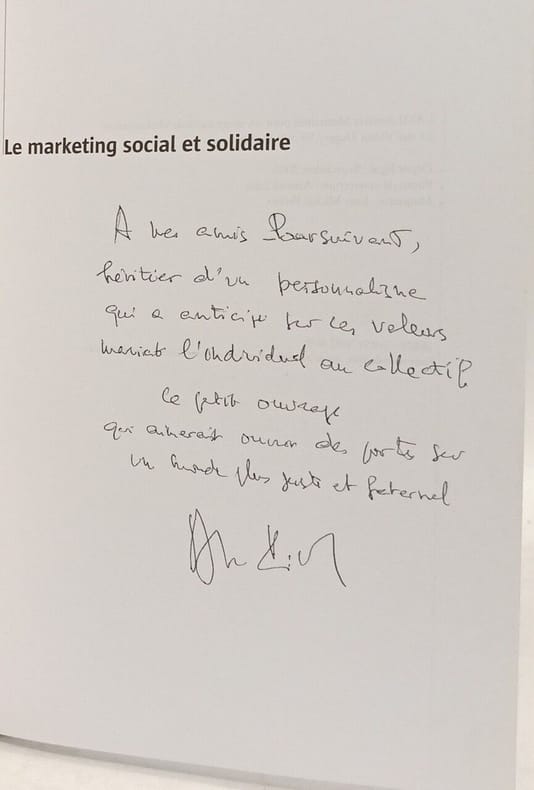 Le marketing social et solidaire
A mes amis Poursuivant,
héritier d'un personnalisme
qui a anticipé sur les valeurs
mariant l'individuel au collectif
ce petit ouvrage
qui aimerait ouvrir des portes sur
un monde plus juste et fraternel